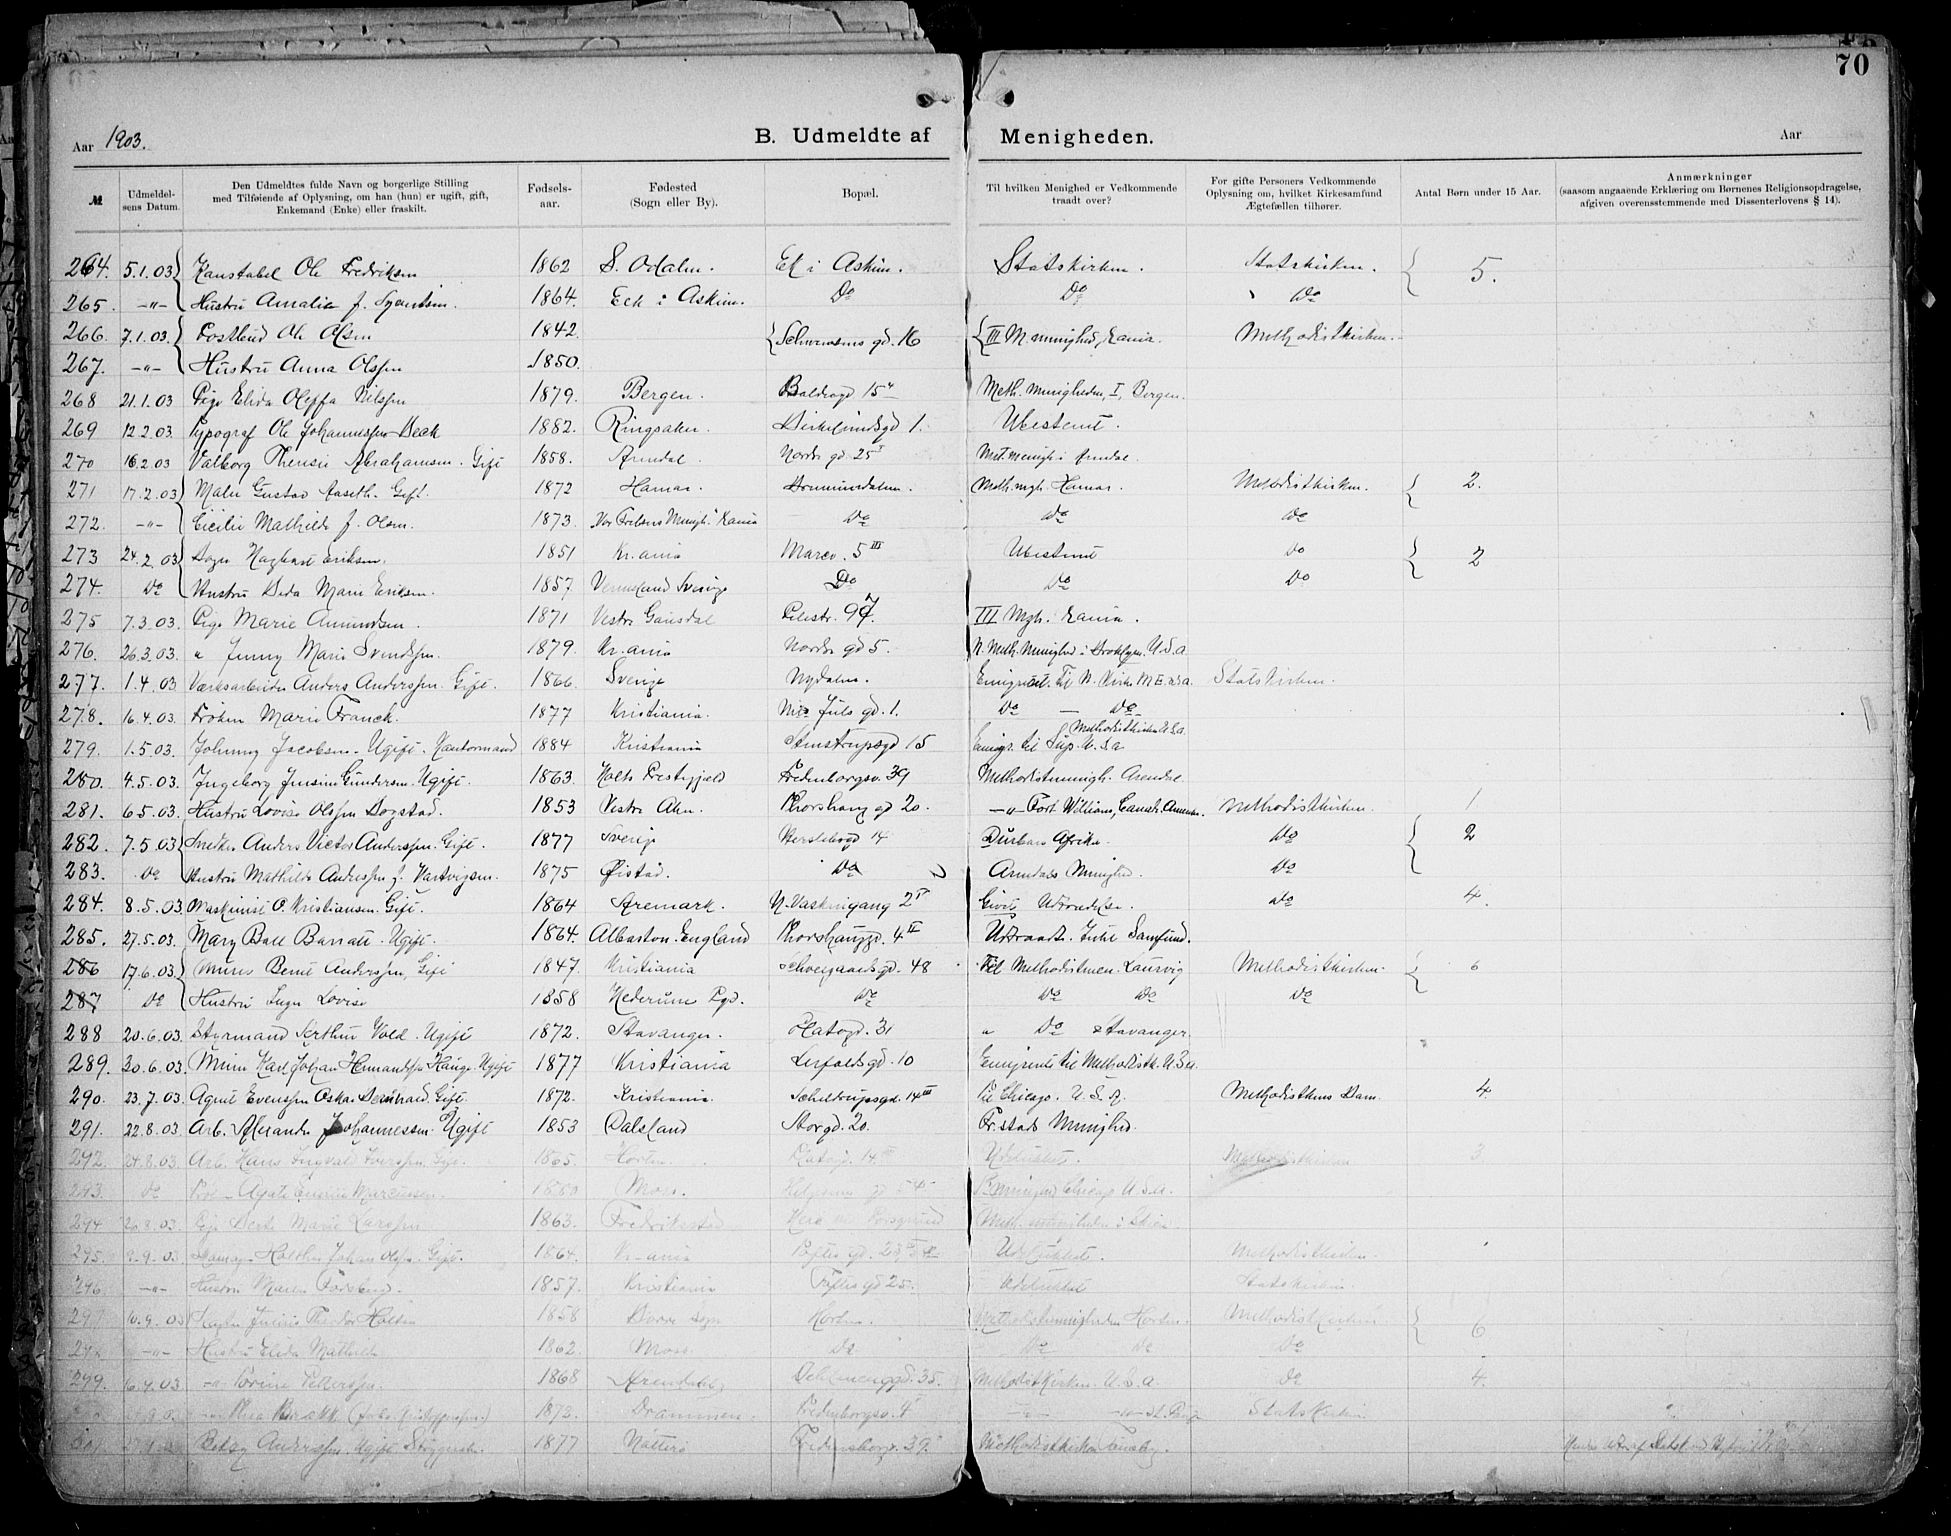 70
Aar 1903. B. Udmeldte af Menigheden. Aar
№ Udmeldelsens Datum. Den Udmeldtes fulde Navn og borgerlige Stilling med Tilføiende af Oplysning, om han (hun) er ugift, gift, Enkemand (Enke) eller fraskilt. Fødselsaar. Fødested (Sogn eller By). Bopæl. Til hvilken Menighed er Vedkommende traadt over? For gifte Personers Vedkommende Oplysning om, hvilket Kirkesamfund Ægtefællen tilhører. Antal Børn under 15 Aar. Anmærkninger (saasom angaaende Erklæring om Børnenes Religionsopdragelse, afgiven overensstemmende med Dissenterlovens § 14).
264. 5.1.03 Konstabel Ole Fredriksen 1862 S. Odalen. Ek i Askim. Statskirken. Statskirken. 5.
265. -"- Hustru Amalie f. 1864. Eck i Askim. Do Do Do
266. 7.1.03. Postbud Ole Olsen 1842. Schwensens gd. 16 III M. menighed, Kania. Methodistkirken.
267. -"- Hustru Anna Olsen 1850.
268 21.1.03 Pige Elida Oleffa Nilsen 1879. Bergen. Baldersgd 15 Meth. Menigheden, I, Bergen.
269 12.2.03. Typograf Ole Johannessen Beck 1882. Ringsaker. Birkelundsgd 1. Ubestemt.
270 16.2.03 Valborg Therese Abrahamsen. Gift 1858. Arendal. Nordr. gd. 25 Met. menigh. i Arendal.
271 17.2.03 Maler Gustav Aaseth. Gift. 1872 Hamar. Brumunddalen. Meth. mgh. Hamar. Methodistkirken. 2.
272. -"- Cicilie Mathilde f. Olsen. 1873. Vor Frelsers Menigh. Kania Do Do Do
273 24.2.03 Hagbart Eriksen. 1851 Kr.ania Marcv. 5 III Ubestemt Do 2
274. Do Hustru Beda Marie Eriksen. 1857. Vermeland Sverige Do Do Do
275 7.3.03. Pige Marie Amundsen. 1871 Vestre Gausdal Pilestr. 97. III Mgh. Kania.
276. 26.3.03. " Jenny Marie Svendsen. 1879. Kr.ania Nordr. gd 5. N. Meth. Menighed i Brooklyn. U.S.a
277. 1.4.03 Værksarbeider Anders Anderssen. Gift. 1866. Sverige Nydalen. Emigreret. til N. Kirke M E USA. Statskirken.
278. 16.4.03. Frøken Marie Franck. 1877 Kristiania. Nils Juls gd. 1. Do — Do
279. 1.5.03. Johnny Jacobsen. Ugift. Kontormand 1884 Kristiania Stenstrupsgd 15 Emigr. til Sup. Methodistkirken U.S.a
280. 4.5.03. Ingeborg Jensine Gundersen. Ugift. 1863. Holts Prestegjeld Fredenborgsv. 39 Methodistmenigh. Arendal
281. 6.5.03. Hustru Lovise Olsen Bogstad. 1853 Vestre Aker. Thorshaug gd 20. -"- Fort Williams, Methodistkirken. 1
282. 7.5.03 Snedker Anders Victor Anderssen. Gift. 1877 Sverige Herslebsgd 14 Durban Afrika. Do 2
283. Do Hustru Mathilde Anderssen f. Hartvigsen. 1875 Øistad. Do Arendals Menighed. Do
284. 8.5.03. Maskinist O. Kristiansen. Gift. 1864 Aremark. N. Vaskergang 2 Givet Udtrædelse. do 4.
285. 27.5.03. Mary Ball Barratt. Ugift. 1864. Albaston. England Thorshauggd. 4 II Udtraadt. Intet Samfund.
286 17.6.03 Murer Bernt Anderssen, Gift 1847. Kristiania Schweigaardsgd. 48 Til Methodistmen. Laurvig Methodistkirken. 6
287 Do Hustru Inga Lovise 1858 Hedrum Pgd. Do Do Do Do
288 20.6.03. Styrmand Arthur Vold. Ugift 1872. Stavanger. Platogd. 31 " Do Stavanger.
289. 30.6.03. Murer Karl Johan Hermandsen Hauge. Ugift 1877 Kristiania Lerfaldsgd. 10 Emigrerte til Methodistk. U.S.a.
290. 23.7.03. Agent Evensen Oskar Bernhard. Gift. 1872. Kristiania. Scheltrupsgd. 14 III Til Chicago. U.S.A. Methodistkens Dam. 4
291. 22.8.03. Arb. Alexander Johannessen. Ugift 1853 Dalsland Storgd. 20. Fr.stads Menighed.
292. 24.8.03. Arb. Hans Ingvald Iverssen. Gift. 1865. Horten. Platogd. 14 Udelukket. Methodistkirken 3.
293. Do Agate Marcussen. 1880 Moss. Helgesens gd 54 Chicago U.S.a.
294 26.8.03. Pige Berte Marie Larssen 1863. Fredrikstad Porsgrund Meth. menigheden i Skien.
295. 9.03. Johan Olsen. Gift. 1864. Kr-ania Toftes gd. 25 Udelukket. Methodistkirken.
296. -"- Hustru Maren Forsberg. 1857. Kristiania Toftes gd 25. Udelukket Statskirken
297 10.9.03 Julius Theodor Holten 1858 Borre Sogn Horten. Methodistmenigheden Horten. Methodistkirken 6
298 -"- Hustru Elida Mathilde 1862. Moss. Do Do do Do
299. 16.9.03 -"- Petterssen. 1868 Arendal 35. Methodistkirken. U.S.A. Do 4.
-"- Thea Brække 1872. Drammen. Fredenborgsv. 4 -"- -"- St. Paul Statskirken
301 Betsy Anderssen. Ugift 1877 Nøtterø Fredensborgv. 39. Methodistkirken Tønsberg.